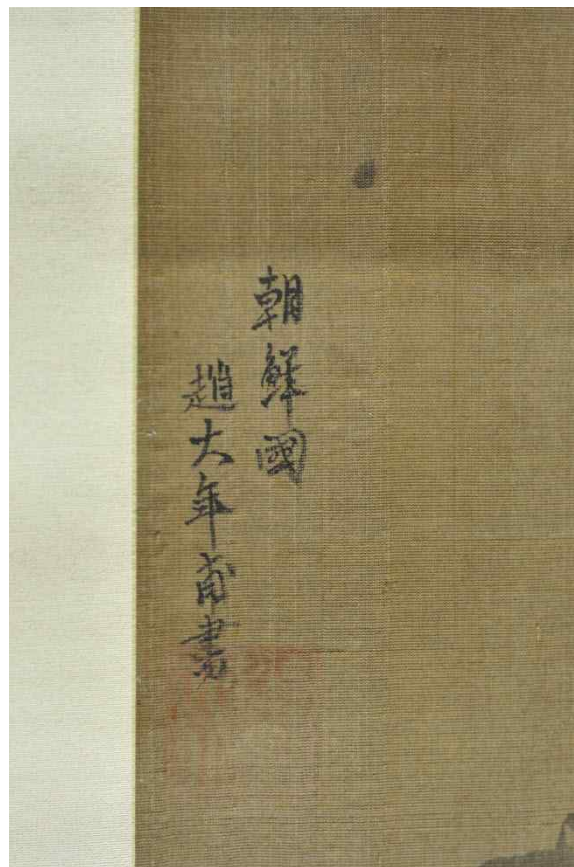 朝鮮國
趙大年甫畫